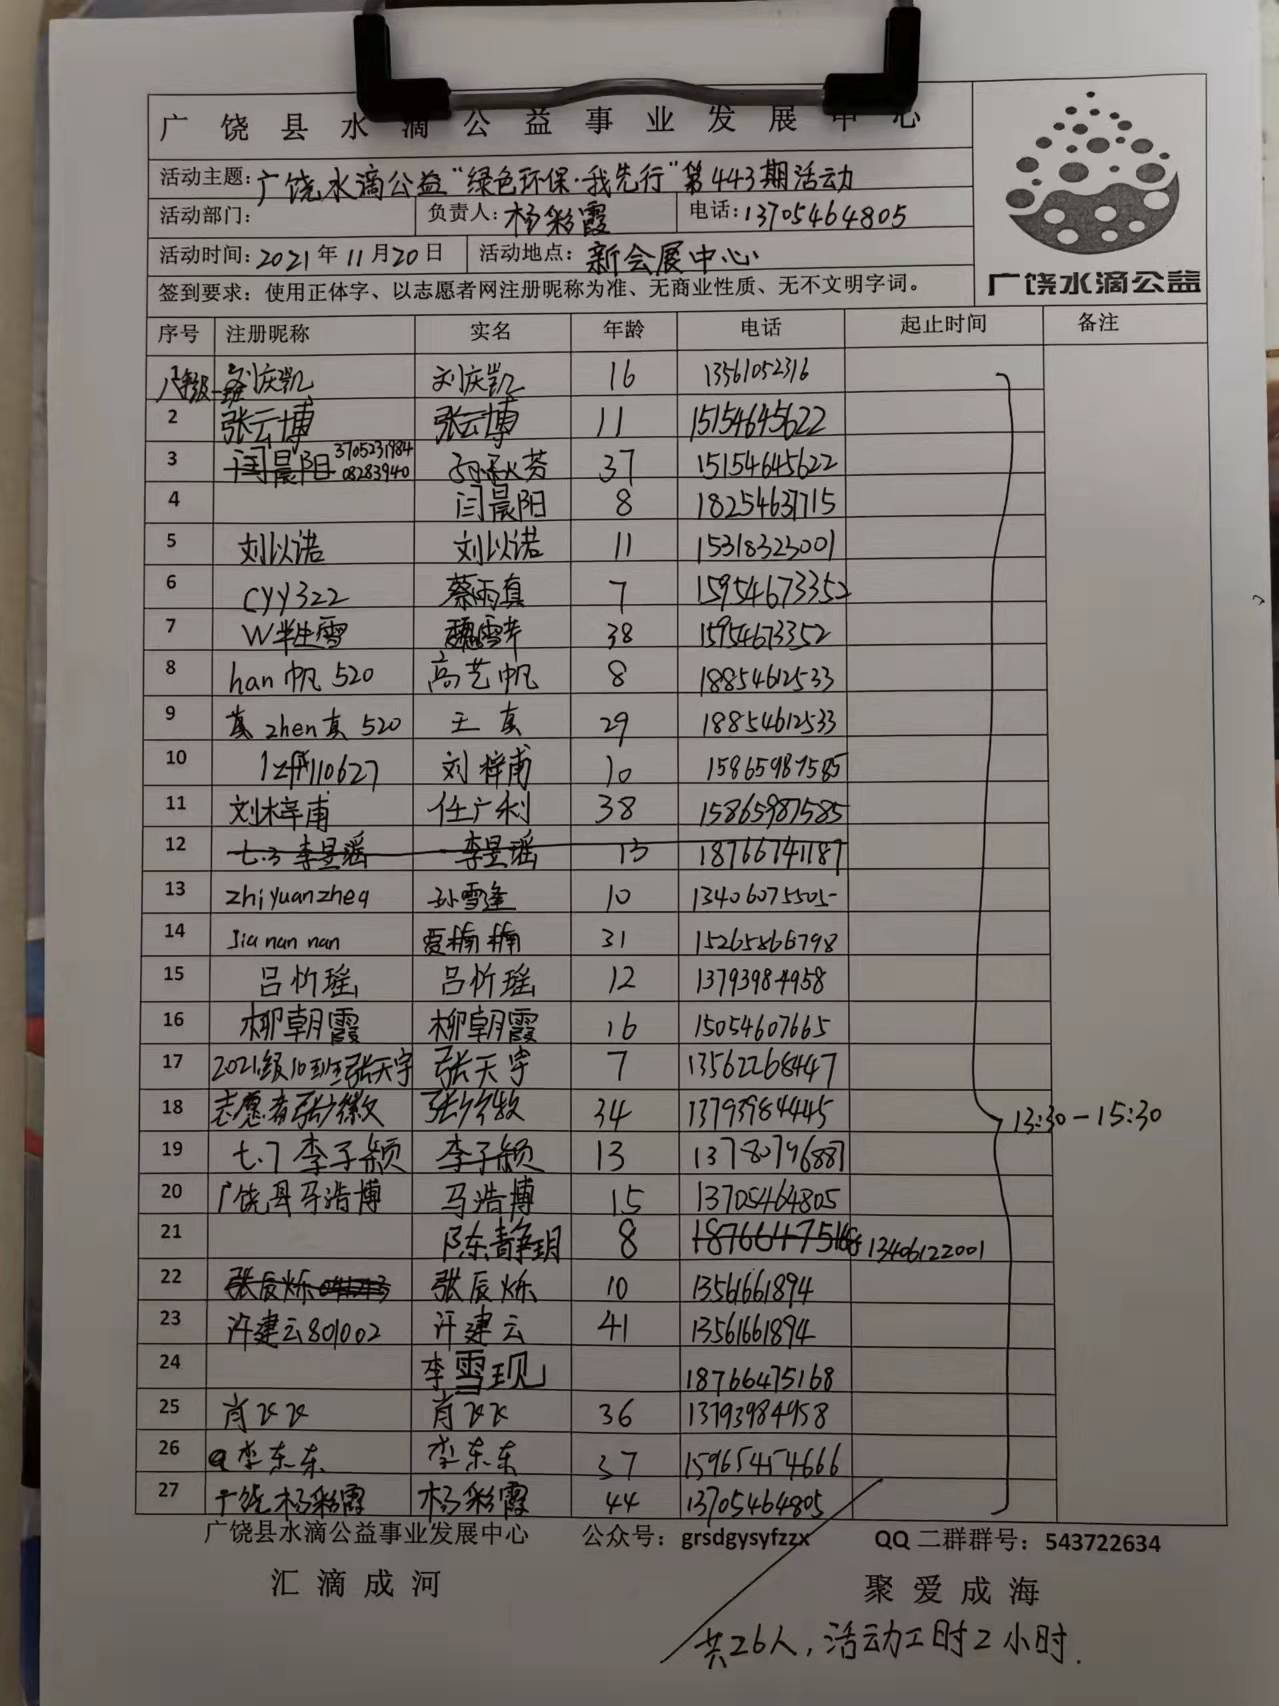 广饶县水滴公益事业发展中心
活动主题:广饶水滴公益“绿色环保·我先行”第443期活动
活动部门: 负责人:杨彩霞 电话:13705464805
活动时间:2021年11月20日 活动地点:新会展中心
签到要求:使用正体字、以志愿者网注册昵称为准、无商业性质、无不文明字词。
广饶水滴公益
序号 注册昵称 实名 年龄 电话 起止时间 备注
1 八年级一班刘庆凯 刘庆凯 16 13561052316
2 张云博 张云博 11 15154645622
3 闫晨阳 370523198408283940 37 15154645622
4 闫晨阳 8 18254631715
5 刘以诺 刘以诺 11 15318323001
6 cyy322 蔡雨真 7 15954673352
7 W半生雪 38 15954673352
8 han帆520 高艺帆 8 18854612533
9 真zhen真520 王真 29 18854612533
10 刘梓甫 10 15865987585
11 刘梓甫 任广利 38 15865987585
12 七.3李昱瑶 李昱瑶 13 18766741187
13 zhiyuanzheq 孙雪逢 10 13406075505
14 Jia nan nan 贾楠楠 31 15265866798
15 吕忻瑶 吕忻瑶 12 13793984958
16 柳朝霞 柳朝霞 16 15054607665
17 2021级10班张天宇 张天宇 7 13562268447
18 志愿者张 张 34 13793984445 13:30-15:30
19 七.7李子颖 李子颖 13 13780796887
20 广饶县马浩博 马浩博 15 13705464805
21 陈静玥 8 18766475168 13406122001
22 张辰烁 张辰烁 10 13561661894
23 许建云801002 许建云 41 13561661894
24 李雪现 18766475168
25 肖飞飞 肖飞飞 36 13793984958
26 q李东东 李东东 37 15965454666
27 广饶杨彩霞 杨彩霞 44 13705464805
广饶县水滴公益事业发展中心 公众号:grsdgysyfzzx QQ二群群号:543722634
汇滴成河 聚爱成海
共26人,活动工时2小时.